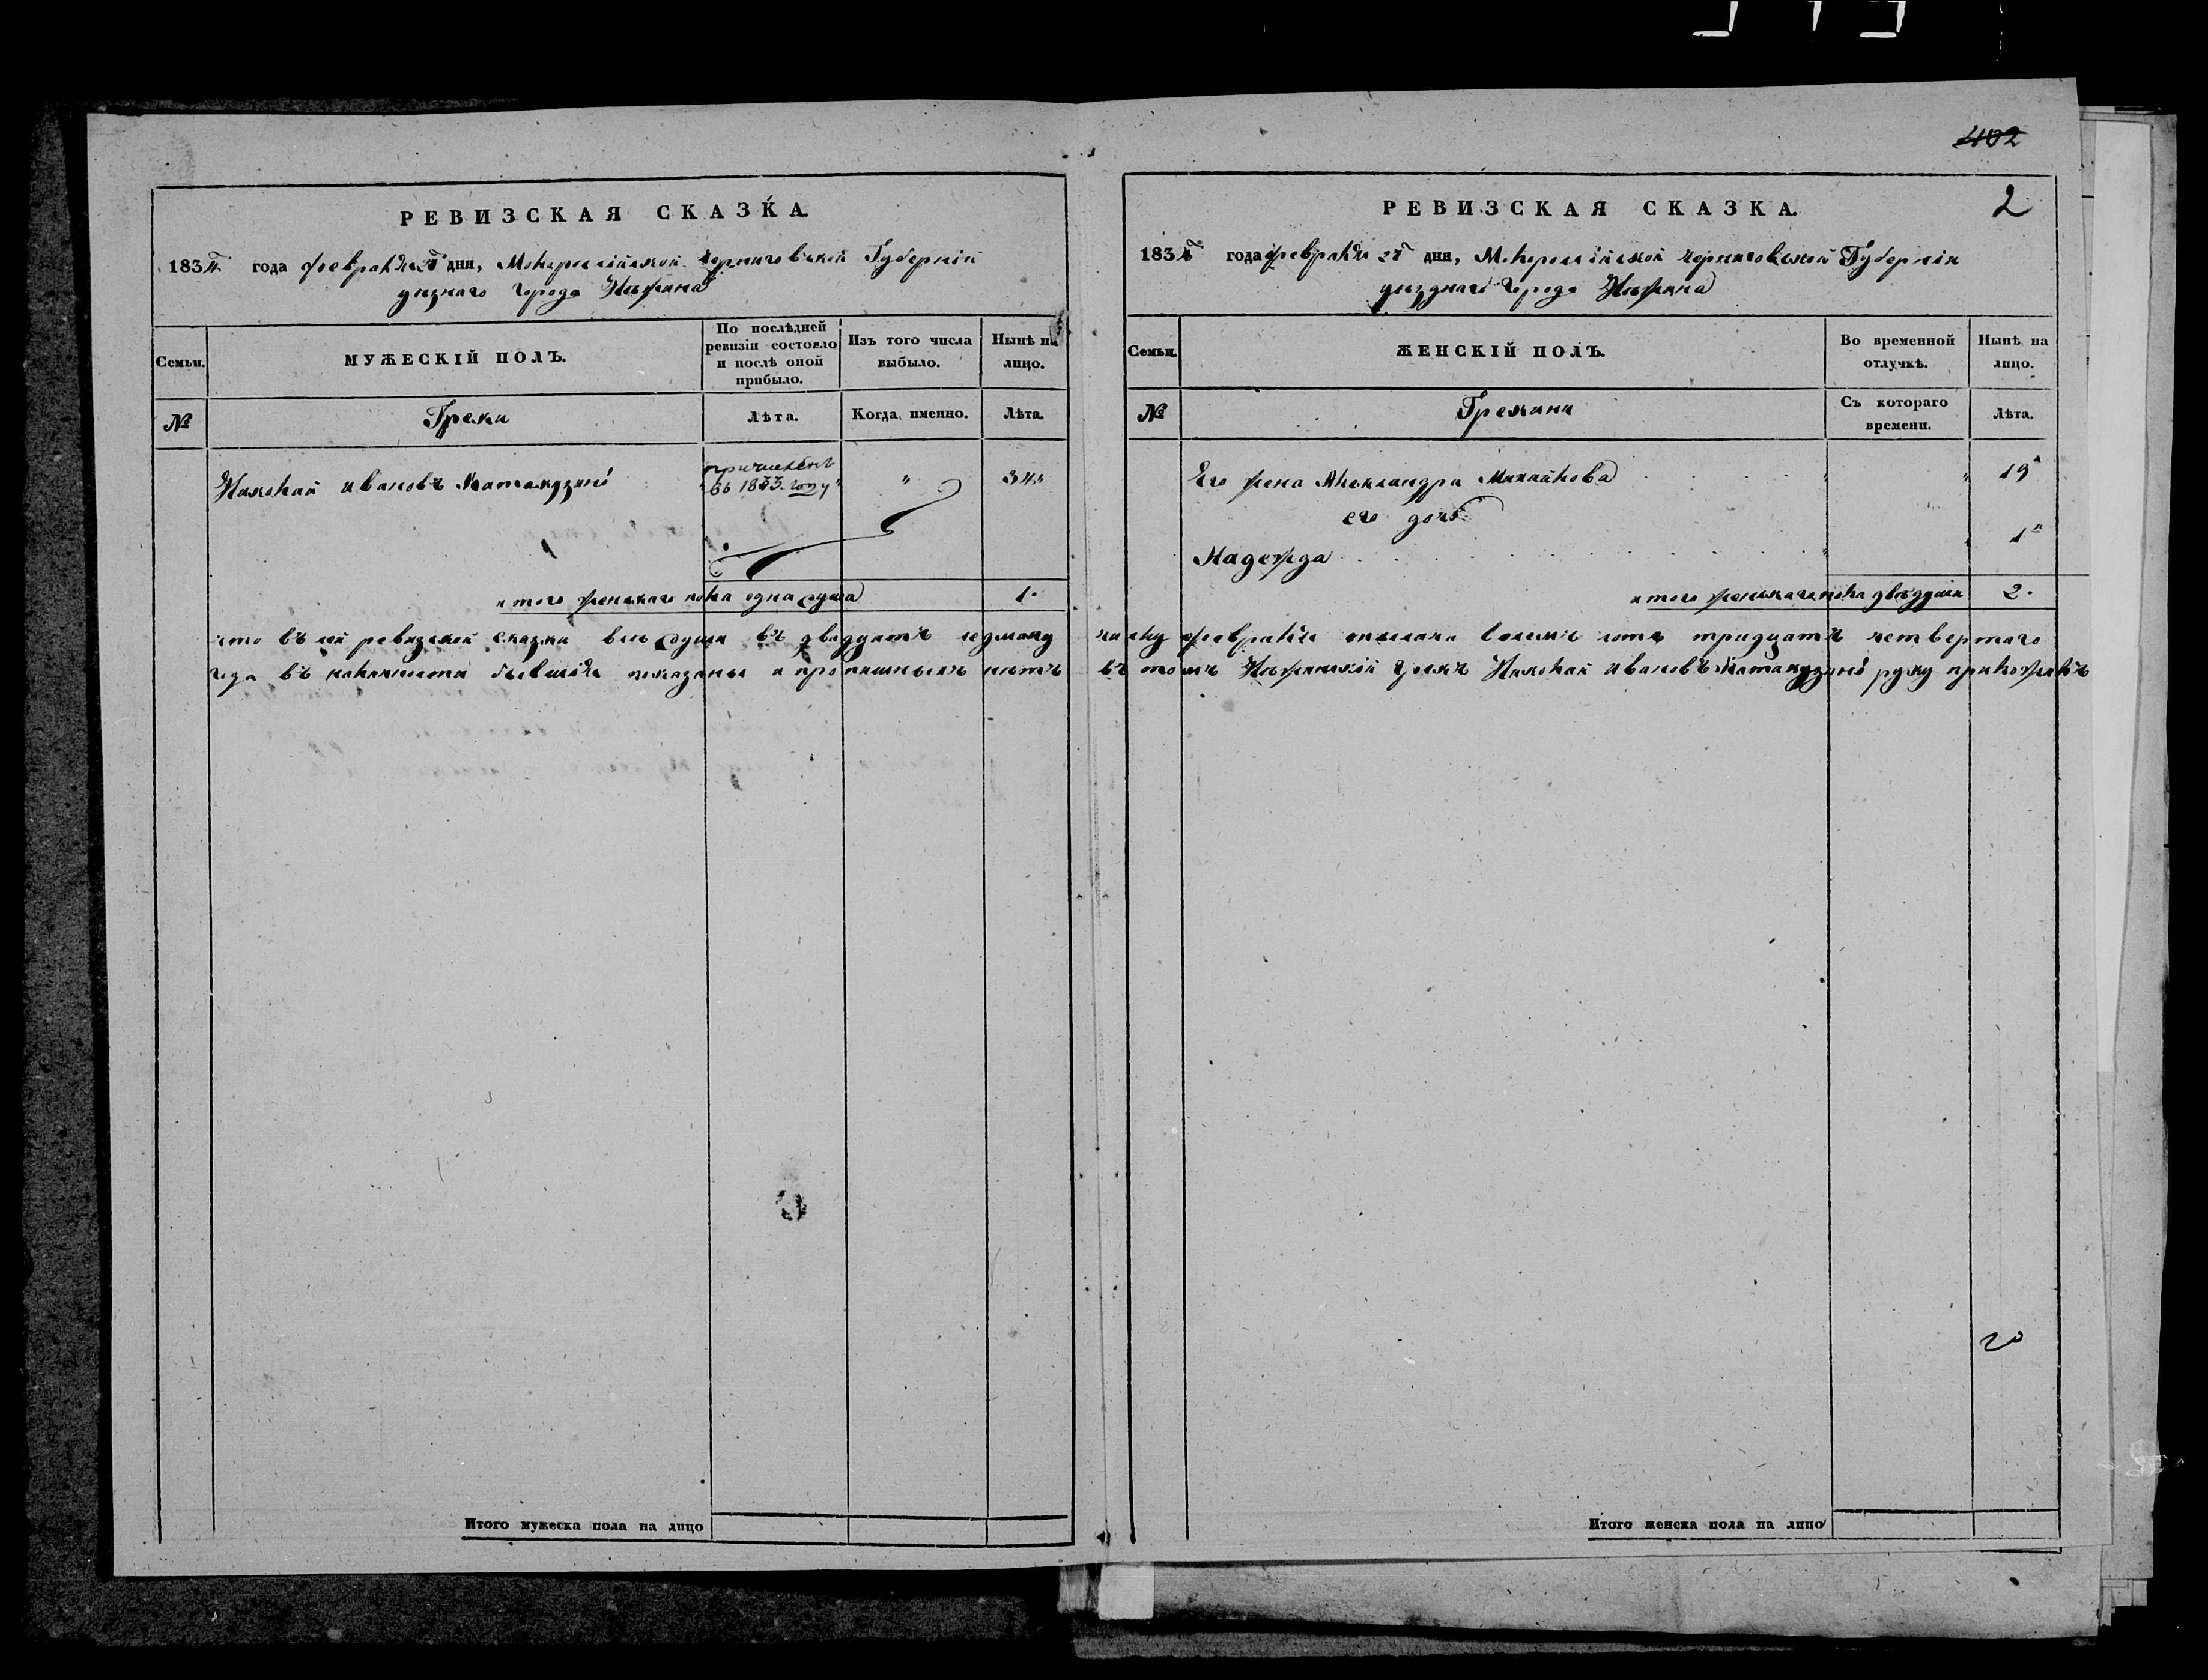 402
РЕВИЗСКАЯ СКАЗКА.
1834 года февраля 27 дня, Малороссийской Черниговской Губернии
уезнаго города Нежина
Семьи.
МУЖЕСКІЙ ПОЛЪ.
По послѣдней ревизіи состояло и послѣ оной прибыло.
Изъ того числа выбыло.
Нынѣ на лицо.
№
Греки
Лѣта.
Когда именно.
Лѣта.
Николай ивановъ
причисленъ
въ 1833. году
"
34"
итого женскаго пола одна душа
1.
РЕВИЗСКАЯ СКАЗКА.
2
1834 года февраля 27 дня, Малороссійской Черниговской Губерніи
уѣзднаго города Нѣжина
Семьи.
ЖЕНСКІЙ ПОЛЪ.
Во временной отлучкѣ.
Нынѣ на лицо.
№
Грекини
Съ котораго времени.
Лѣта.
Его жена Александра Михайлова
19"
его дочь
Надежда
1"
итого женскаго пола двѣ души
2.
что въ сей ревизской сказки все души въ двадцать седмому числу февраля тысяча восемъ сотъ тридцатъ четвертаго
года въ наличности бывшіе показаны и пропишныхъ нѣтъ въ томъ Нѣжинскій грекъ Николай ивановъ руку приложилъ
20
Итого мужеска пола на лицо
Итого женска пола на лицо